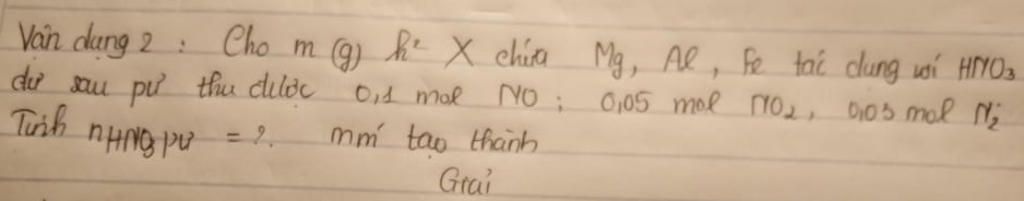 Vận dụng 2 : Cho m (g) h² X chứa Mg, Al, Fe tác dụng với HNO₃
dư sau pư thu được 0,1 mol NO ; 0,05 mol NO₂, 0,03 mol N₂
Tính nHNO₃ pư = ?. mm' tạo thành
Giải